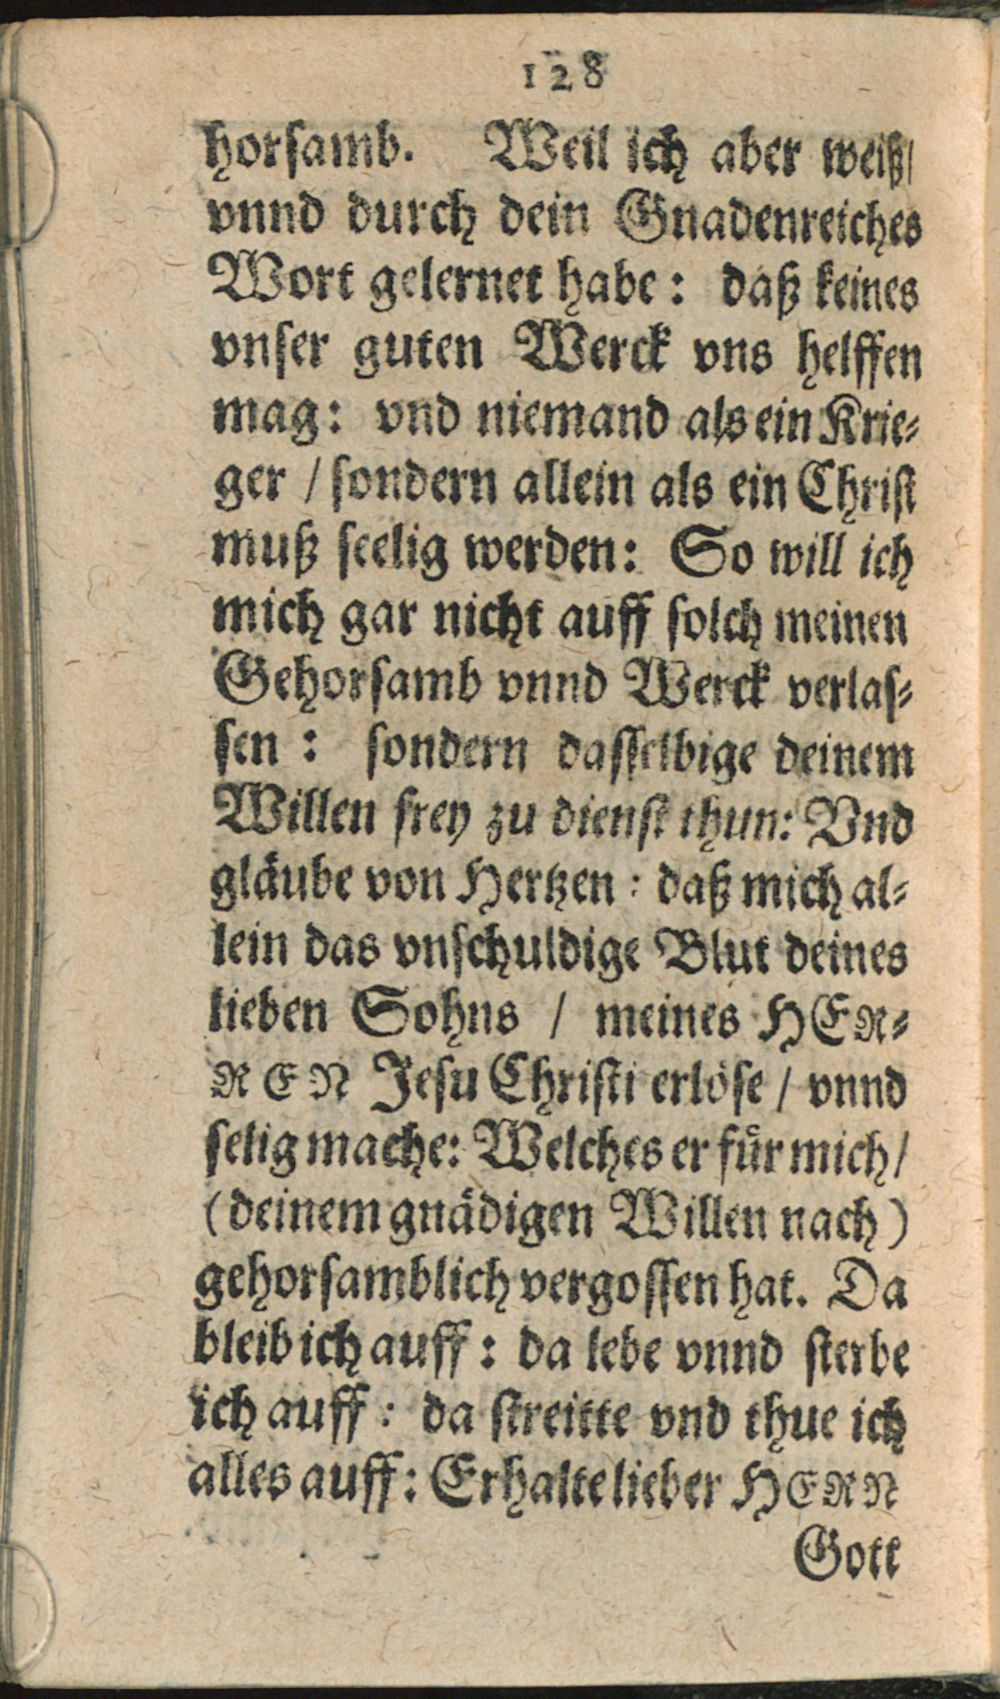 128
horsamb. Weil ich aber weiß/
vnnd durch dein Gnadenreiches
Wort gelernet habe: daß keines
vnser guten Werck vns helffen
mag: vnd niemand als ein Krie⸗
ger / sondern allein als ein Christ
muß seelig werden: So will ich
mich gar nicht auff solch meinen
Gehorsamb vnnd Werck verlas⸗
sen: sondern dasselbige deinem
Willen frey zu dienst thun: Vnd
gläube von Hertzen: daß mich al⸗
lein das vnschuldige Blut deines
lieben Sohns / meines HER⸗
REN Jesu Christi erlöse / vnnd
selig mache: Welches er für mich /
(deinem gnädigen Willen nach)
gehorsamblich vergossen hat. Da
bleib ich auff: da lebe vnnd sterbe
ich auff: da streitte vnd thue ich
alles auff: Erhalte lieber HERN
Gott